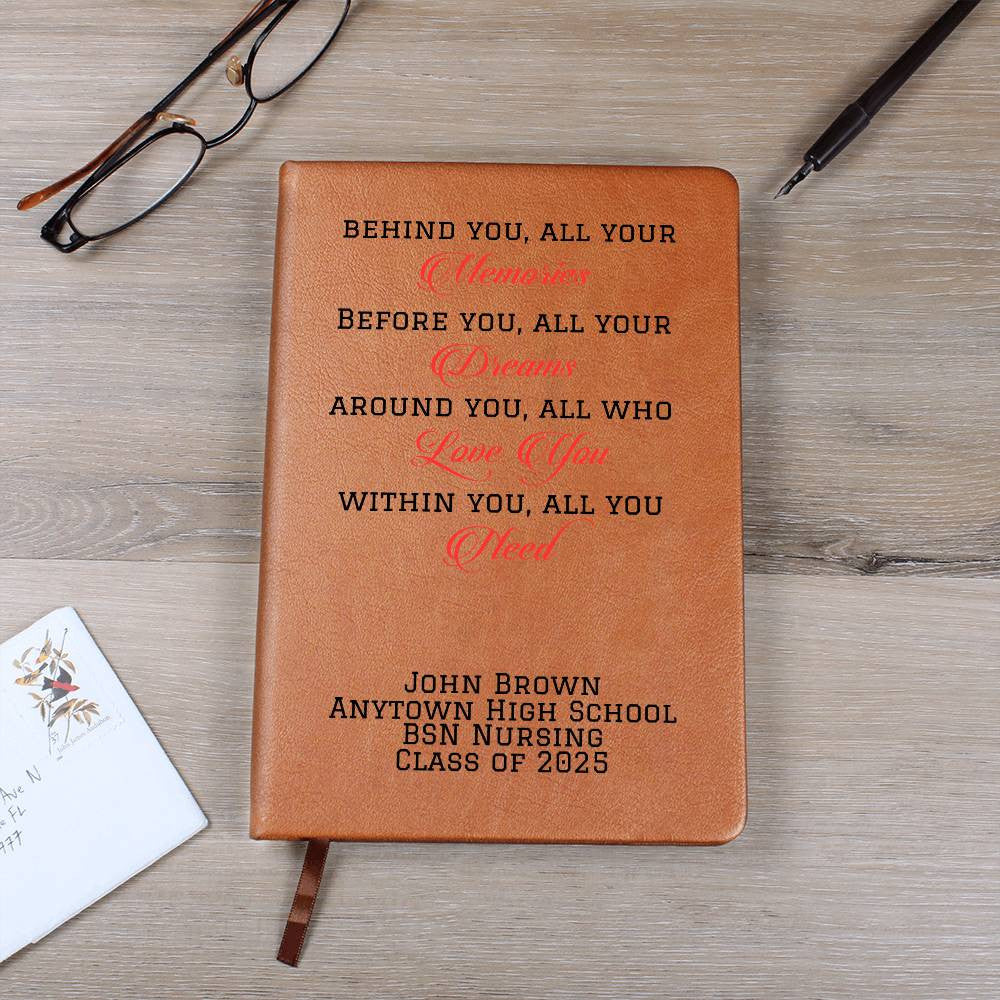 BEHIND YOU, ALL YOUR
Memories
BEFORE YOU, ALL YOUR
Dreams
AROUND YOU, ALL WHO
Love You
WITHIN YOU, ALL YOU
Need
JOHN BROWN
ANYTOWN HIGH SCHOOL
BSN NURSING
CLASS OF 2025
John James Audubon
Ave N
FL
977